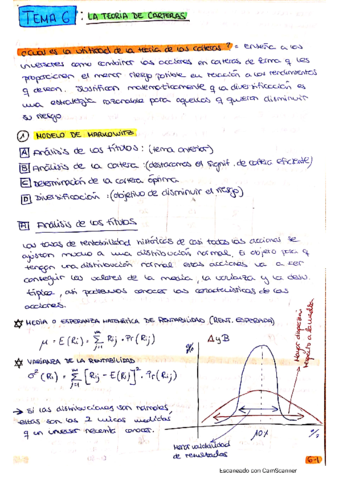 TEMA 6: LA TEORÍA DE CARTERAS
¿Cuál es la utilidad de la teoría de las carteras?= enseña a los
inversores como combinar las acciones en carteras de forma q les
proporcionen el menor riesgo posible en relación a los rendimientos
q desean. Justifican matemáticamente q la diversificación es
una estrategia razonable para aquellos q quieran disminuir
su riesgo.
① MODELO DE MARKOWITZ
A Análisis de los títulos: (tema anterior)
B Análisis de la cartera: (destacamos el signif. de cartera eficiente)
C Determinación de la cartera óptima
D Diversificación: (objetivo de disminuir el riesgo)
A Análisis de los títulos
Las tasas de rentabilidad históricas de casi todas las acciones se
ajustan mucho a una distribución normal. El objeto para q
tengan una distribución normal estas acciones va a ser
conseguir los valores de la media, la varianza y la desv
típica, así podremos conocer las características de las
acciones.
MEDIA O ESPERANZA MATEMÁTICA DE RENTABILIDAD (RENT. ESPERADA)
μ = E(Ri) = Σ Rij · Pr(Rij)
VARIANZA DE LA RENTABILIDAD
σ²(Ri) = Σ [Rij - E(Ri)]² · Pr(Rij)
→ Si las distribuciones son normales,
estas son las 2 únicas medidas
q un inversor necesita conocer.
%
A y B
Mayor dispersión
respecto a la media
10%
Mayor variabilidad
de resultados
6-1
Escaneado con CamScanner